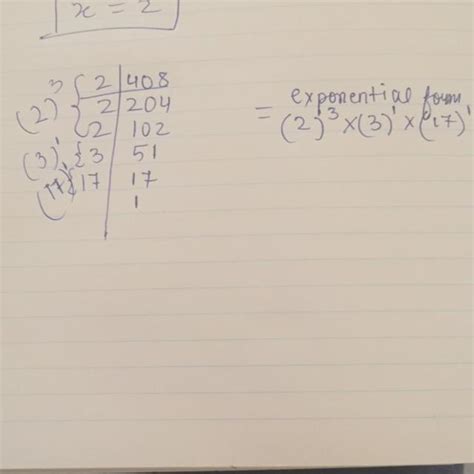 x = 2
(2)³ { 2 | 408
2 | 204
2 | 102
(3)¹ { 3 | 51
(17)¹ { 17 | 17
1
exponential form
= (2)³ × (3)¹ × (17)¹